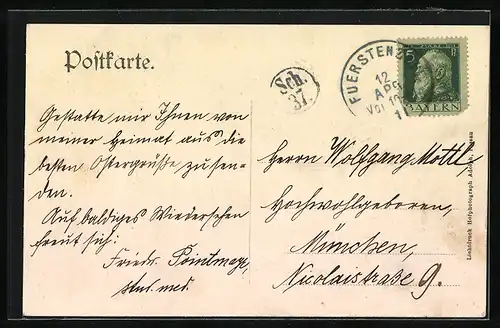 Postkarte.
Sch.
37.
FUERSTENZ
12
APR
Vor 10
1
5
BAYERN
Gestatte mir Ihnen von
meiner Heimat aus die
besten Ostergrüße, zu sen-
den.
Auf baldiges Wiedersehen
freut sich:
Friedr.
stud. med.
Herrn Wolfgang Mottl,
Hochwohlgeboren,
München,
Nicolaistraße 9.
Lichtdruck Hofphotograph